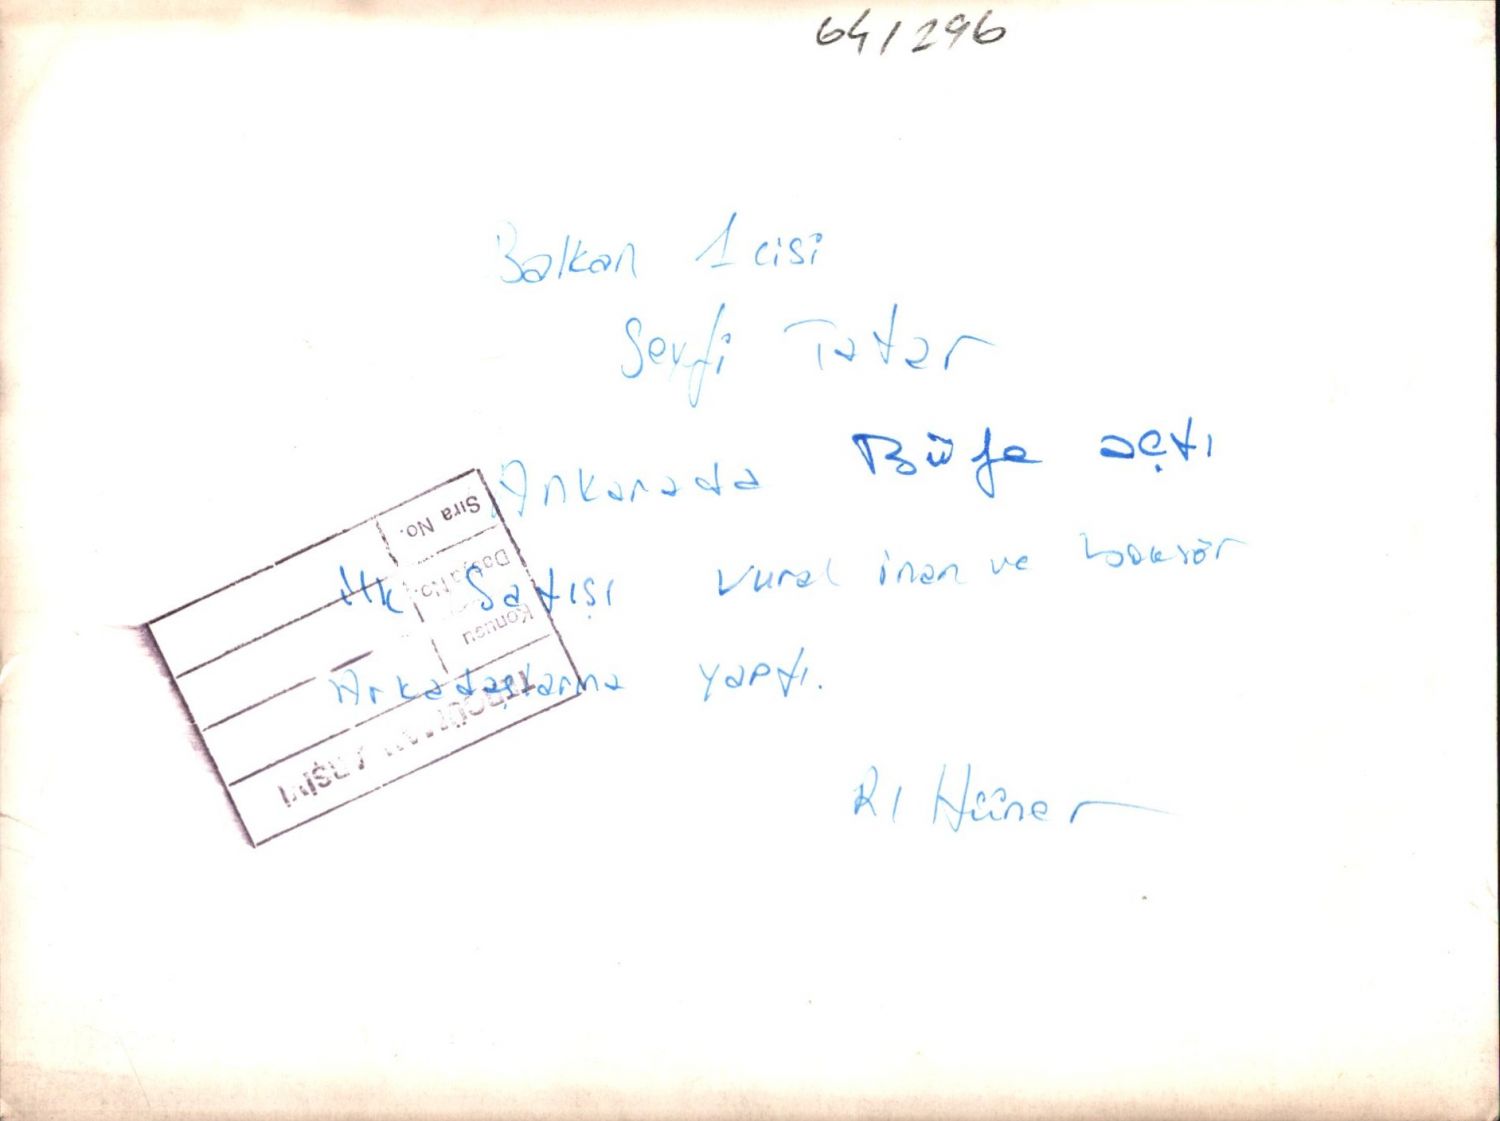 64/296
Balkan 1 cisi
Seyfi Tatar
Ankarada Büfe açtı
ilk Satışı Vural inan ve boksör
Arkadaşlarına yaptı.
R1 Hüner
Sıra No.
Dosya No.
Konusu
TERCÜMAN ARŞİVİ